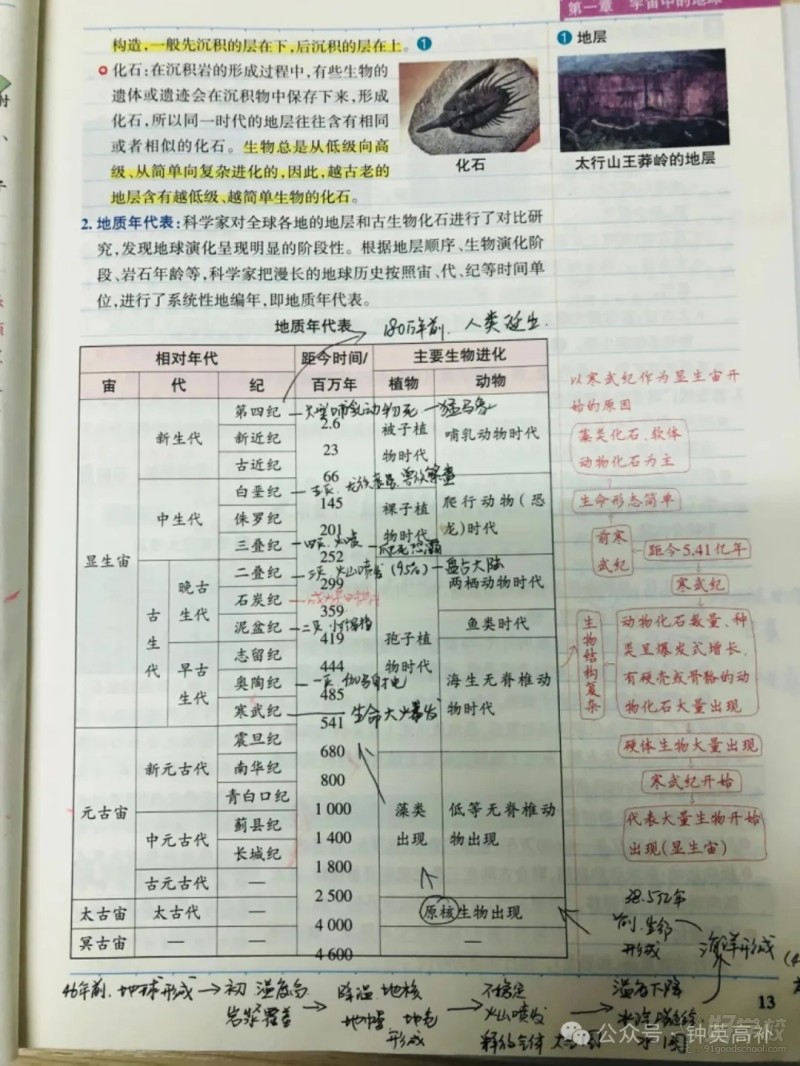 第一章 宇宙中的地球
构造,一般先沉积的层在下,后沉积的层在上。❶
化石:在沉积岩的形成过程中,有些生物的
遗体或遗迹会在沉积物中保存下来,形成
化石,所以同一时代的地层往往含有相同
或者相似的化石。生物总是从低级向高
级、从简单向复杂进化的,因此,越古老的
地层含有越低级、越简单生物的化石。
化石
❶ 地层
太行山王莽岭的地层
2. 地质年代表:科学家对全球各地的地层和古生物化石进行了对比研
究,发现地球演化呈现明显的阶段性。根据地层顺序、生物演化阶
段、岩石年龄等,科学家把漫长的地球历史按照宙、代、纪等时间单
位,进行了系统性地编年,即地质年代表。
地质年代表
180万年前,人类诞生.
相对年代 距今时间/百万年 主要生物进化
宙 代 纪 植物 动物
显生宙 新生代 第四纪 被子植物时代 哺乳动物时代
猛马象
2.6
新近纪
23
古近纪
66
中生代 白垩纪 裸子植物时代 爬行动物(恐龙)时代
145
侏罗纪
201
三叠纪
252
古生代 晚古生代 二叠纪 孢子植物时代 两栖动物时代
(95%) 盘古大陆
299
石炭纪
359
泥盆纪 鱼类时代
419
早古生代 志留纪 海生无脊椎动物时代
444
奥陶纪
485
寒武纪 生命大爆发
541
元古宙 新元古代 震旦纪
680
南华纪 藻类出现 低等无脊椎动物出现
800
青白口纪
1 000
中元古代 蓟县纪
1 400
长城纪
1 800
古元古代 —
2 500
太古宙 太古代 — 原核生物出现
4 000
冥古宙 — — —
4 600
以寒武纪作为显生宙开
始的原因
藻类化石、软体
动物化石为主
生命形态简单
前寒武纪
距今5.41亿年
寒武纪
生物结构复杂
动物化石数量、种
类呈爆发式增长,
有硬壳或骨骼的动
物化石大量出现
硬体生物大量出现
寒武纪开始
代表大量生物开始
出现(显生宙)
形成
海洋形成
46年前,地球形成→初 温度高
岩浆覆盖
降温 地核
地幔 地壳
形成
不稳定
火山喷发
释放气体
温度下降
13
公众号·钟英高补
好学校
91goodschool.com